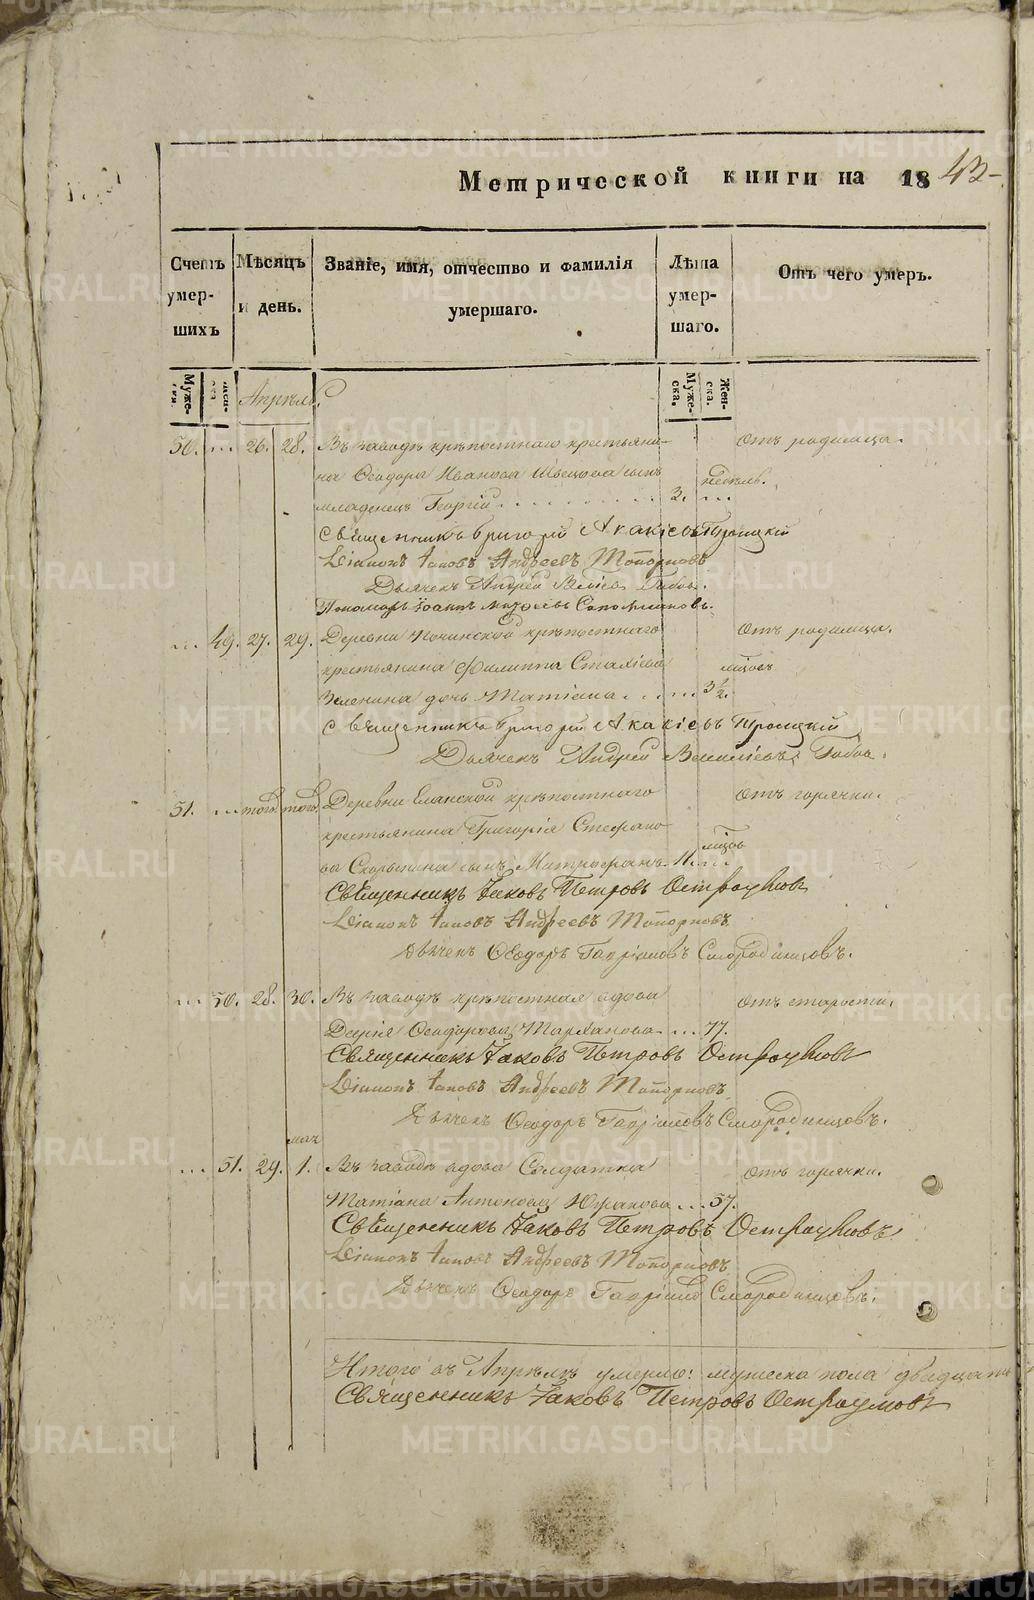 Метрической книги на 1843
Счетъ умер- шихъ
Мѣсяцъ и день.
Званіе, имя, отчество и фамилія умершаго.
Лѣта умер- шаго.
Отъ чего умеръ.
Муже- ски.
Жен- ска
Апрѣль.
Муже- ска.
Жен- ска.
50. ... 26. 28. Въ заводѣ крѣпостнаго крестьяни- отъ родимца.
на Ѳеодора Иванова Швецова сынъ недѣль.
младенецъ Георгій . . . . . . . 3. ...
Священникъ Григорій Акакіевъ Троицкій
Діаконъ Іаковъ Андреевъ Топорковъ
Дьячекъ Андрей
Пономарь Іоаннъ
... 49. 27. 29. Деревни крѣпостнаго отъ родимца.
крестьянина Филиппа мѣсяц
Зеленина дочь Татіана . . . ... 3½.
Священникъ Григорій Акакіевъ Троицкій
Дьячекъ Андрей Василіевъ
51. ... того. того. Деревни Еланской крѣпостнаго отъ горячки.
крестьянина Григорія Стефано-
ва сынъ Митрофанъ. 11. ...
Священникъ Іаковъ Петровъ Остроумовъ
Діаконъ Іаковъ Андреевъ Топорковъ
Дьячекъ Ѳеодоръ Гавріиловъ Смородинцовъ.
... 50. 28. 30. Въ заводѣ крѣпостная вдова отъ старости.
Дарія Ѳеодорова ... 77.
Священникъ Іаковъ Петровъ Остроумовъ
Діаконъ Іаковъ Андреевъ Топорковъ
Дьячекъ Ѳеодоръ Гавріиловъ Смородинцовъ.
мая
... 51. 29. 1. Въ заводѣ вдова Солдатка отъ горячки.
Татіана Антонова ... 57.
Священникъ Іаковъ Петровъ Остроумовъ
Діаконъ Іаковъ Андреевъ Топорковъ
Дьячекъ Ѳеодоръ Гавріиловъ Смородинцовъ.
Итого въ Апрѣлѣ умерло: мужеска пола двадцать
Священникъ Іаковъ Петровъ Остроумовъ
METRIKI.GASO-URAL.RU